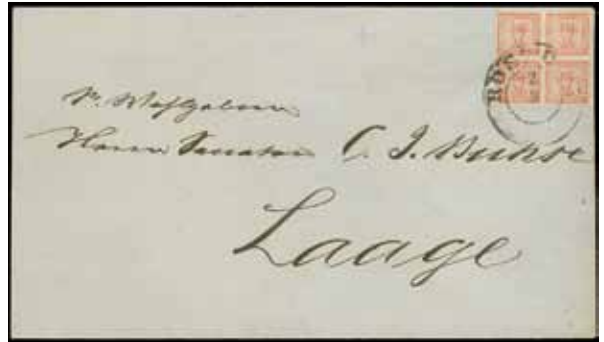 ROSTO
Sr. Wohlgeboren
Herrn Senator C. J. Buhse
Laage